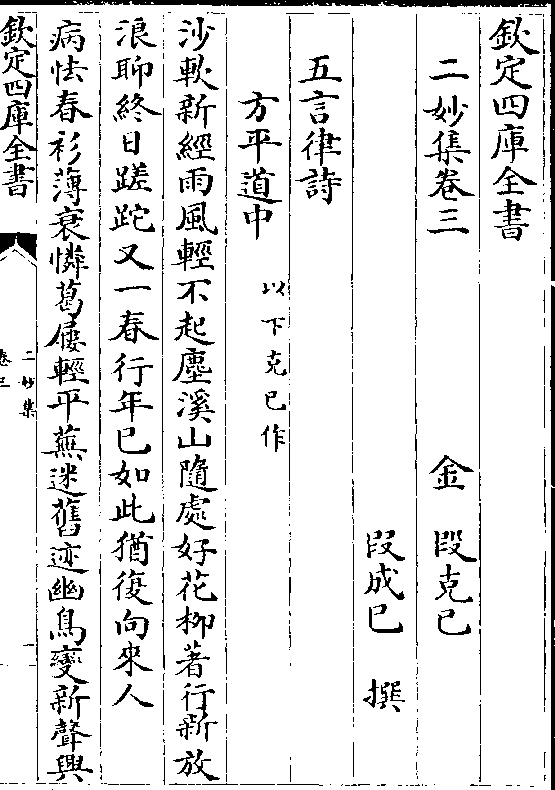 欽定四庫全書
二妙集卷三
金　段克已
段成已　撰
五言律詩
方平道中　以下克已作
沙軟新經雨風輕不起塵溪山隨處好花柳著行新放
浪聊終日蹉跎又一春行年已如此猶復向來人
病怯春衫薄衰憐葛屨輕平蕪迷舊迹幽鳥變新聲興
欽定四庫全書
二妙集
卷三
一